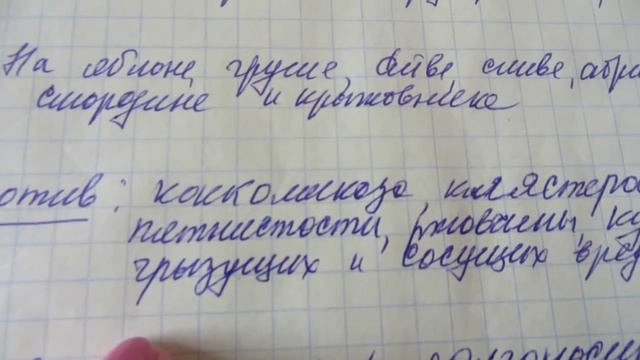 На яблоне, груше, айве, сливе, абри
смородине и крыжовнике
отив: коккомикоза, клястеро
пятнистости, ржавчины, ку
грызущих и сосущих вред